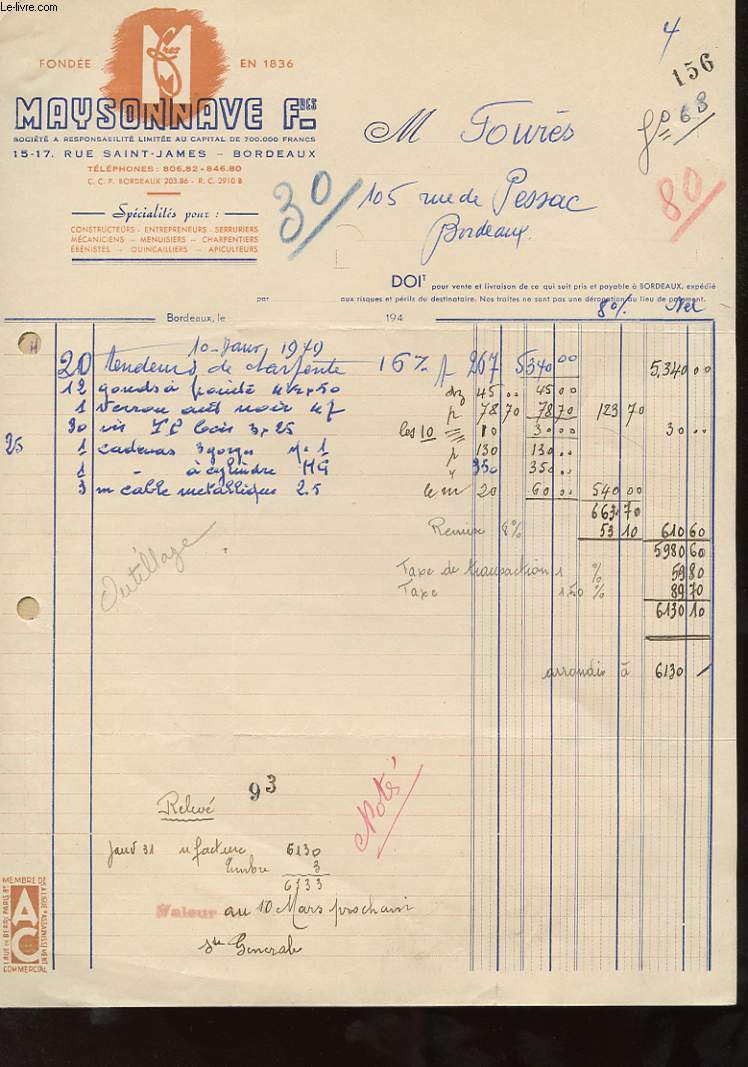 Le-livre.com
4
156
Fres
M
FONDÉE EN 1836
MAYSONNAVE Fres
SOCIÉTÉ A RESPONSABILITÉ LIMITÉE AU CAPITAL DE 700.000 FRANCS
15-17, RUE SAINT-JAMES – BORDEAUX
TÉLÉPHONES: 806.82 - 846.80
C. C. P. BORDEAUX 203.86 - R. C. 2910 B
Spécialités pour :
CONSTRUCTEURS - ENTREPRENEURS - SERRURIERS
MÉCANICIENS - MENUISIERS - CHARPENTIERS
ÉBÉNISTES - QUINCAILLIERS - APICULTEURS
30
fo 68
80
M Tourès
105 rue de Pessac
Bordeaux.
DOIT pour vente et livraison de ce qui suit pris et payable à BORDEAUX, expédié
par aux risques et périls du destinataire. Nos traites ne sont pas une dérogation au lieu de paiement.
Bordeaux, le 194 8% Net
10 Janv 1949
20 tendeurs de charpente 16 % 267 5340 00 5,340 00
12 gonds à pointe dz 45 .. 45 ..
1 verrou p 78 70 78 70 123 70
30 vis bois 3x25 les 10 10 30 .. 30 ..
25 1 cadenas 3 gorges N° 1 p 130 130 ..
1 - à cylindre " 350 350 ..
3 m cable metallique 2.5 le m 20 60 .. 540 00
663 70
Remise 8% 53 10 610 60
5980 60
Taxe de transaction 1 % 59 80
Taxe 1.50 % 89 70
6130 10
arrondis à 6130 /
Outillage
93
Noté
Relevé
Janv 31 n facture 6130
timbre 3
6133
Valeur au 10 Mars prochain
Sté Générale
MEMBRE DE LA LIGUE D'ASSAINISSEMENT COMMERCIAL
1 RUE DE BERRI PARIS 8e
AC